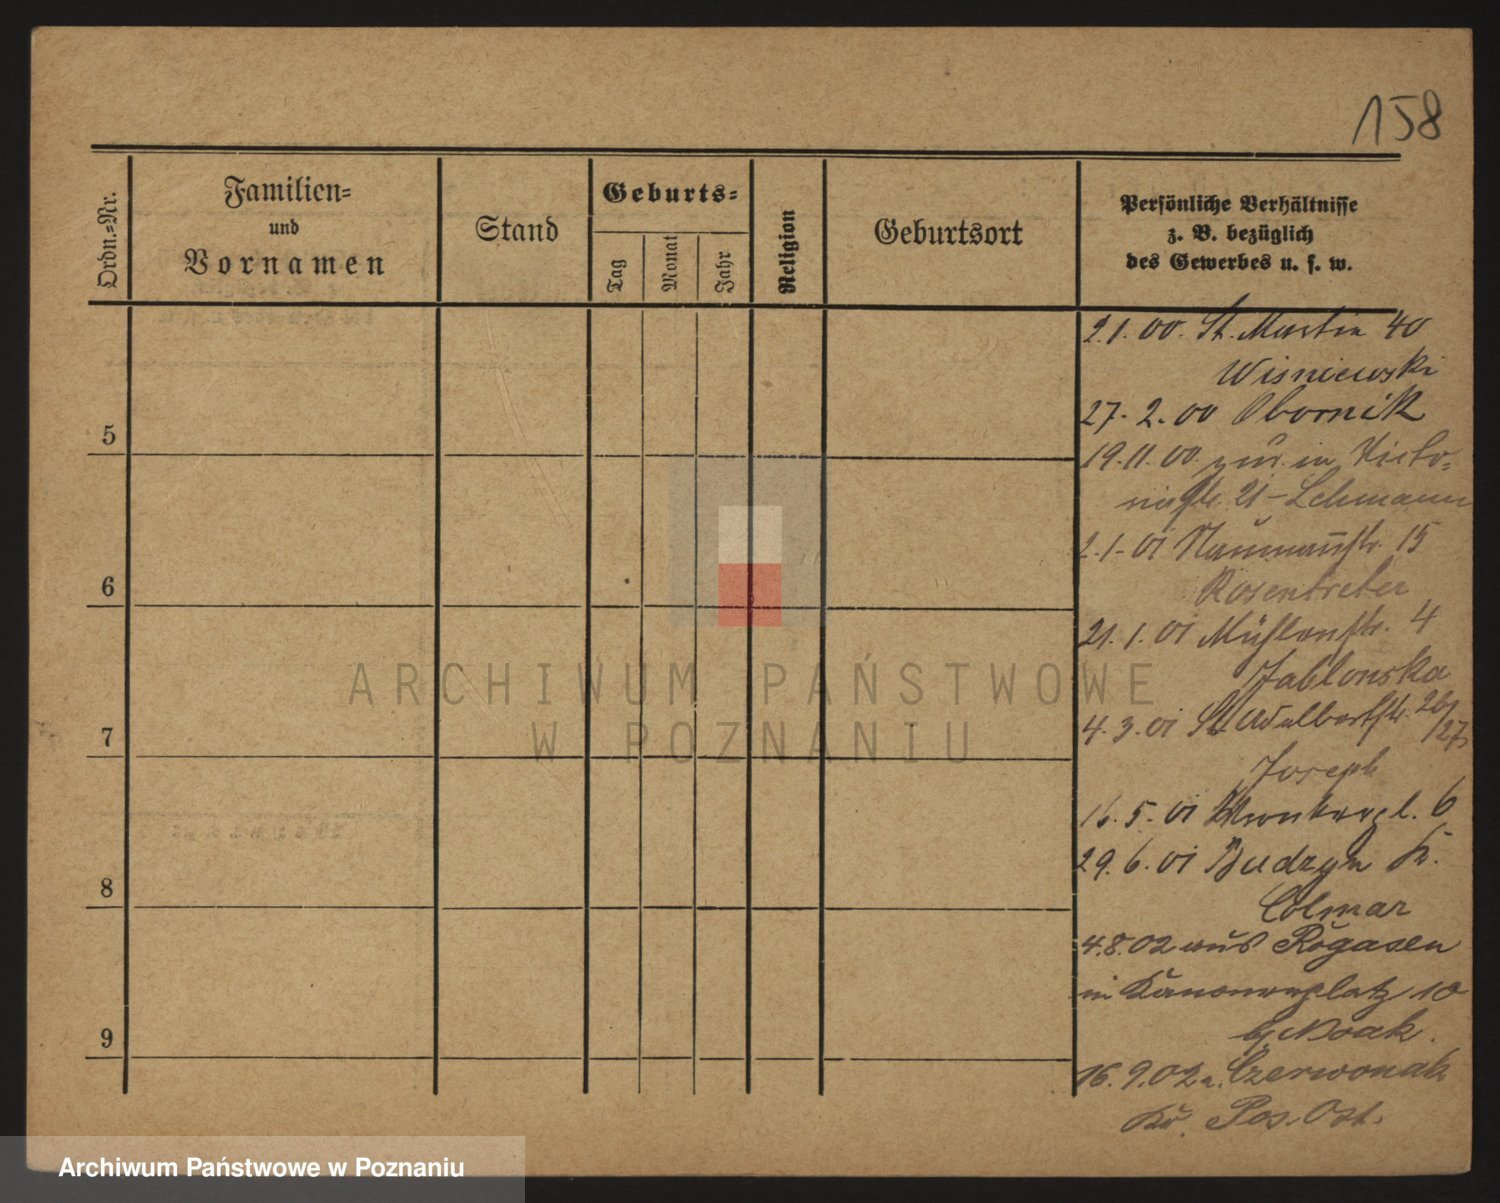 158
Ordn.-Nr.
Familien-
und
Vornamen
Stand
Geburts-
Tag
Monat
Jahr
Religion
Geburtsort
Persönliche Verhältnisse
z. B. bezüglich
des Gewerbes u. s. w.
2.1.00. St. Martin 40
Wisniewski
27. 2. 00 Obornik
5
19.11.00 zur. in Victo-
riastr. 21 - Lehmann
2.1.01 Naumannstr. 15
6
Rosentreter
21. 1. 01 Mühlenstr. 4
Jablonska
4. 3. 01 St. Adalbertstr. 26/
27
7
Joseph
16. 5. 01 6
29. 6. 01 Budzyn Kr.
8
Colmar
4.8.02 aus Rogasen
in Kanonenplatz 10
b/ Noak.
9
16. 9. 02 n. Czerwonak
Kr. Pos. Ost.
ARCHIWUM PAŃSTWOWE
W POZNANIU
Archiwum Państwowe w Poznaniu